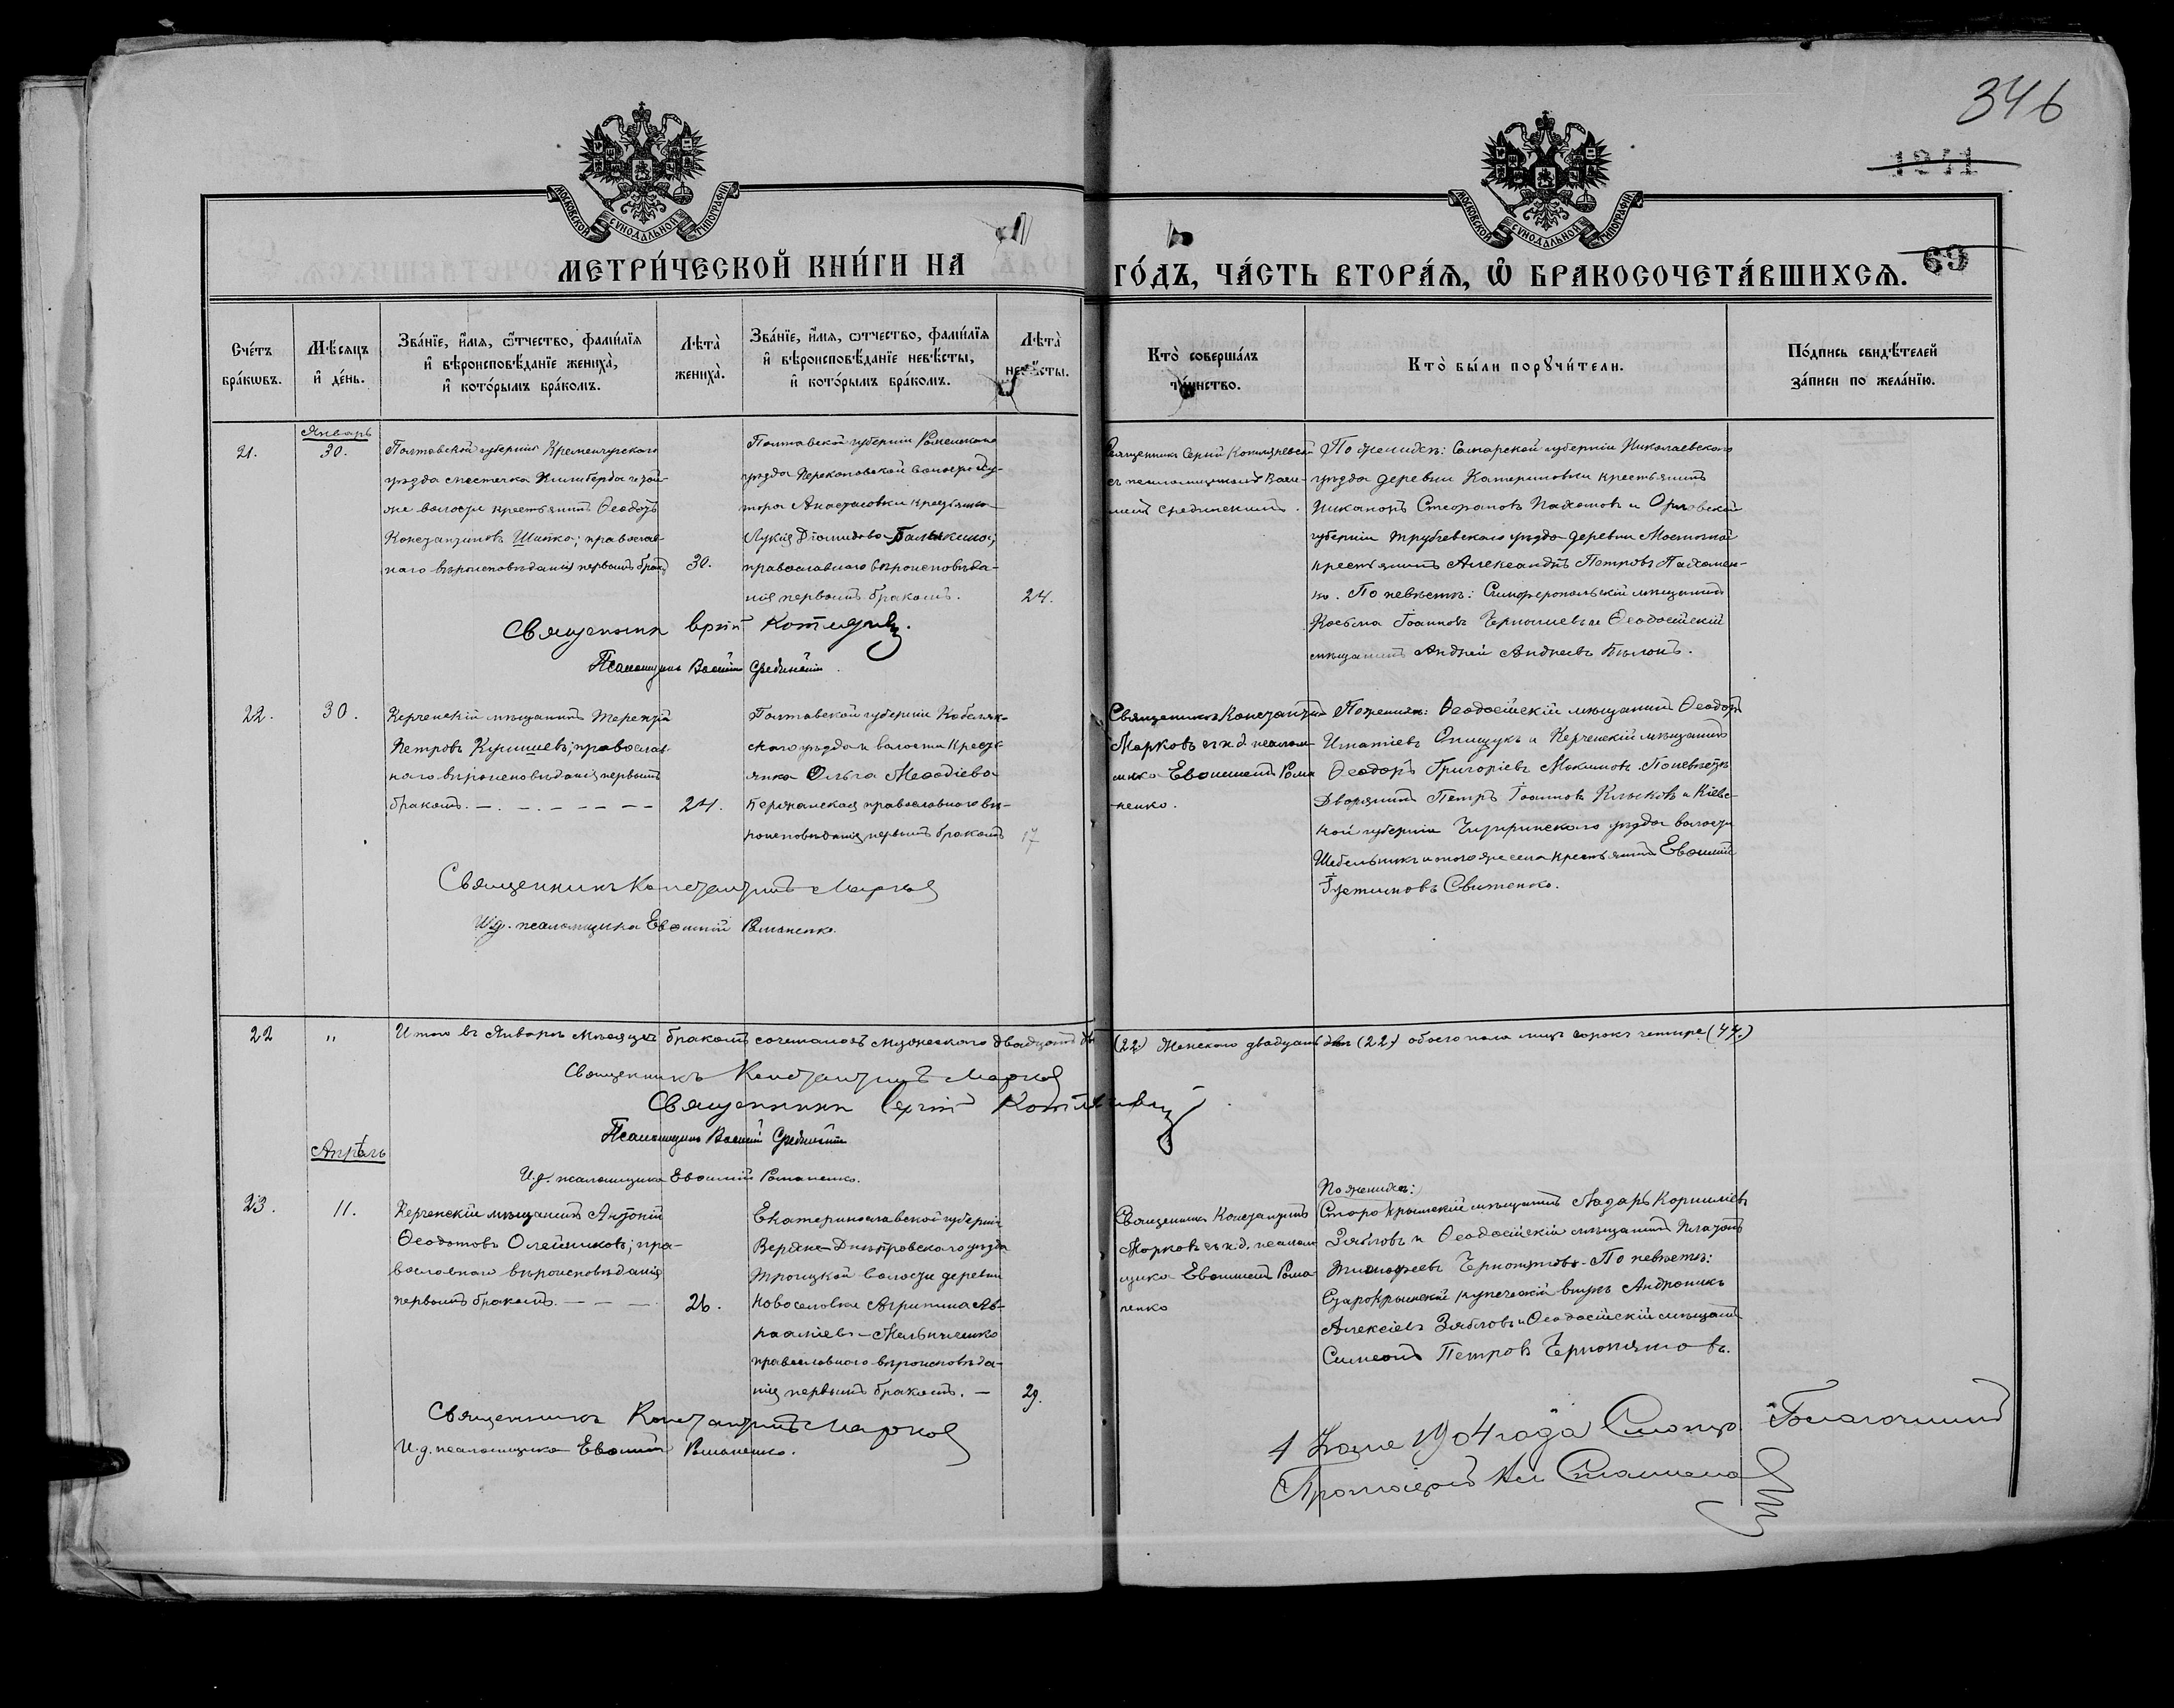 346
1241
69
МОСКОВСКОЙ СѴНОДАЛЬНОЙ ТИПОГРАФІИ
МОСКОВСКОЙ СѴНОДАЛЬНОЙ ТИПОГРАФІИ
МЕТРИ́ЧЕСКОЙ КНИ́ГИ НА ГО́ДЪ, ЧА́СТЬ ВТОРА́Ѧ, Ѽ БРАКОСОЧЕТА́ВШИХСѦ.
Сче́тъ бра́кѡвъ.
Мѣ́сяцъ и҆ де́нь.
Зва́нїе, и҆́мѧ, ѻ҆́тчество, фами́лїѧ и҆ вѣроисповѣ́данїе жениха̀, и҆ кото́рымъ бра́комъ.
Лѣта̀ жениха̀.
Зва́нїе, и҆́мѧ, ѻ҆́тчество, фами́лїѧ и҆ вѣроисповѣ́данїе невѣ́сты, и҆ кото́рымъ бра́комъ.
Лѣта̀ невѣ́сты.
Кто̀ соверша́лъ та́инство.
Кто̀ бы́ли порꙋчи́тели.
По́дпись свидѣ́телей за́писи по жела́нїю.
21.
Январь
30.
Полтавской губерніи Кременчугскаго
уѣзда местечка
же волости крестьянинъ Ѳеодотъ
Константиновъ Шипко; православ-
наго вѣроисповѣданія первымъ брак.
30.
Полтавской губерніи Роменскаго
уѣзда Перекоповской волости ху-
тора Анастасовки крестьянка
Лукія Діомидова
православнаго вѣроисповѣда-
нія первымъ бракомъ.
24.
Священникъ Сергій
съ псаломщикомъ Васи-
ліемъ Срединскимъ.
По женихѣ: Самарской губерніи Николаевскаго
уѣзда деревни Катериновки крестьянинъ
Никаноръ Стефановъ Пахомовъ и Орловской
губерніи Трубчевскаго уѣзда деревни
крестьянинъ Александръ Петровъ Пахомен-
ко. По невѣстѣ: Симферопольскій мѣщанинъ
Косьма Іоанновъ Чернышевъ и Ѳеодосійскій
мѣщанинъ Андрей Андреевъ
Священникъ
Псаломщикъ Василій Срединскій.
22.
30.
Керченскій мѣщанинъ Терентій
Петровъ Куришевъ; православ-
наго вѣроисповѣданія первымъ
бракомъ.
24.
Полтавской губерніи Кобеляк-
скаго уѣзда и волости кресть-
янка Ольга Меѳодіева
православнаго вѣ-
роисповѣданія первымъ бракомъ
17
Священникъ Константинъ
Марковъ съ и. д. псалом-
щика Евѳиміемъ Рома-
ненко.
По женихѣ: Ѳеодосійскій мѣщанинъ Ѳеодоръ
Игнатіевъ Онищукъ и Керченскій мѣщанинъ
Ѳеодоръ Григоріевъ Максимовъ. По невѣстѣ
Дворянинъ Петръ Іоанновъ Клысковъ и Кіевс-
кой губерніи Чигиринскаго уѣзда волости
и того же села крестьянинъ Евѳимій
Свитенко.
Священникъ Константинъ Марковъ
И. д. псаломщика Евѳимій Романенко.
22 " Итого въ Январѣ мѣсяцѣ бракомъ сочеталось мужескаго двадцать два (22) женскаго двадцать двѣ (22) обоего пола лицъ сорокъ четыре (44.)
Священникъ Константинъ Марковъ
Священникъ Сергій
Псаломщикъ Василій Срединскій
И. д. псаломщика Евѳимій Романенко.
Апрѣль
23.
11.
Керченскій мѣщанинъ Антоній
Ѳеодотовъ Олейниковъ; пра-
вославнаго вѣроисповѣданія
первымъ бракомъ.
26.
Екатеринославской губерніи
Верхне-Днѣпровскаго уѣзда
Троицкой волости деревни
Новоселовки Агрипина Ав-
рааміева Мельниченко
православнаго вѣроисповѣда-
нія первымъ бракомъ. —
29.
Священникъ Константинъ
Марковъ съ и. д. псалом-
щика Евѳиміемъ Рома-
ненко
По женихѣ:
Старокрымскій мѣщанинъ Лазарь Корниліевъ
Зябловъ и Ѳеодосійскій мѣщанинъ Платонъ
Тимофеевъ Чернопятовъ. По невѣстѣ:
Старокрымскій купеческій внукъ Андроникъ
Алексіевъ Зябловъ и Ѳеодосійскій мѣщанинъ
Симеонъ Петровъ Чернопятовъ.
Священникъ Константинъ Марковъ
И. д. псаломщика Евѳимій Романенко.
1904 года Смотр. Благочинный
Протоіерей